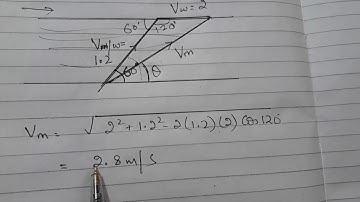 Vw = 2
60° 120°
Vm/w =
1.2
Vm
60° θ
Vm = √2² + 1.2² - 2(1.2)(2) Cos 120
= 2.8 m/s